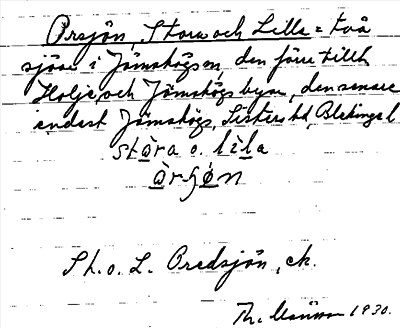 Orsjön, Stora och Lilla = två
sjöar i Jämshögs sn, den förre tillh
Holje och Jämshögs byar, den senare
endast Jämshögs, Listers hd, Blekinge l
stòra o. lìla
òrʂøn
St. o. L. Oredsjön, ek.
1930.